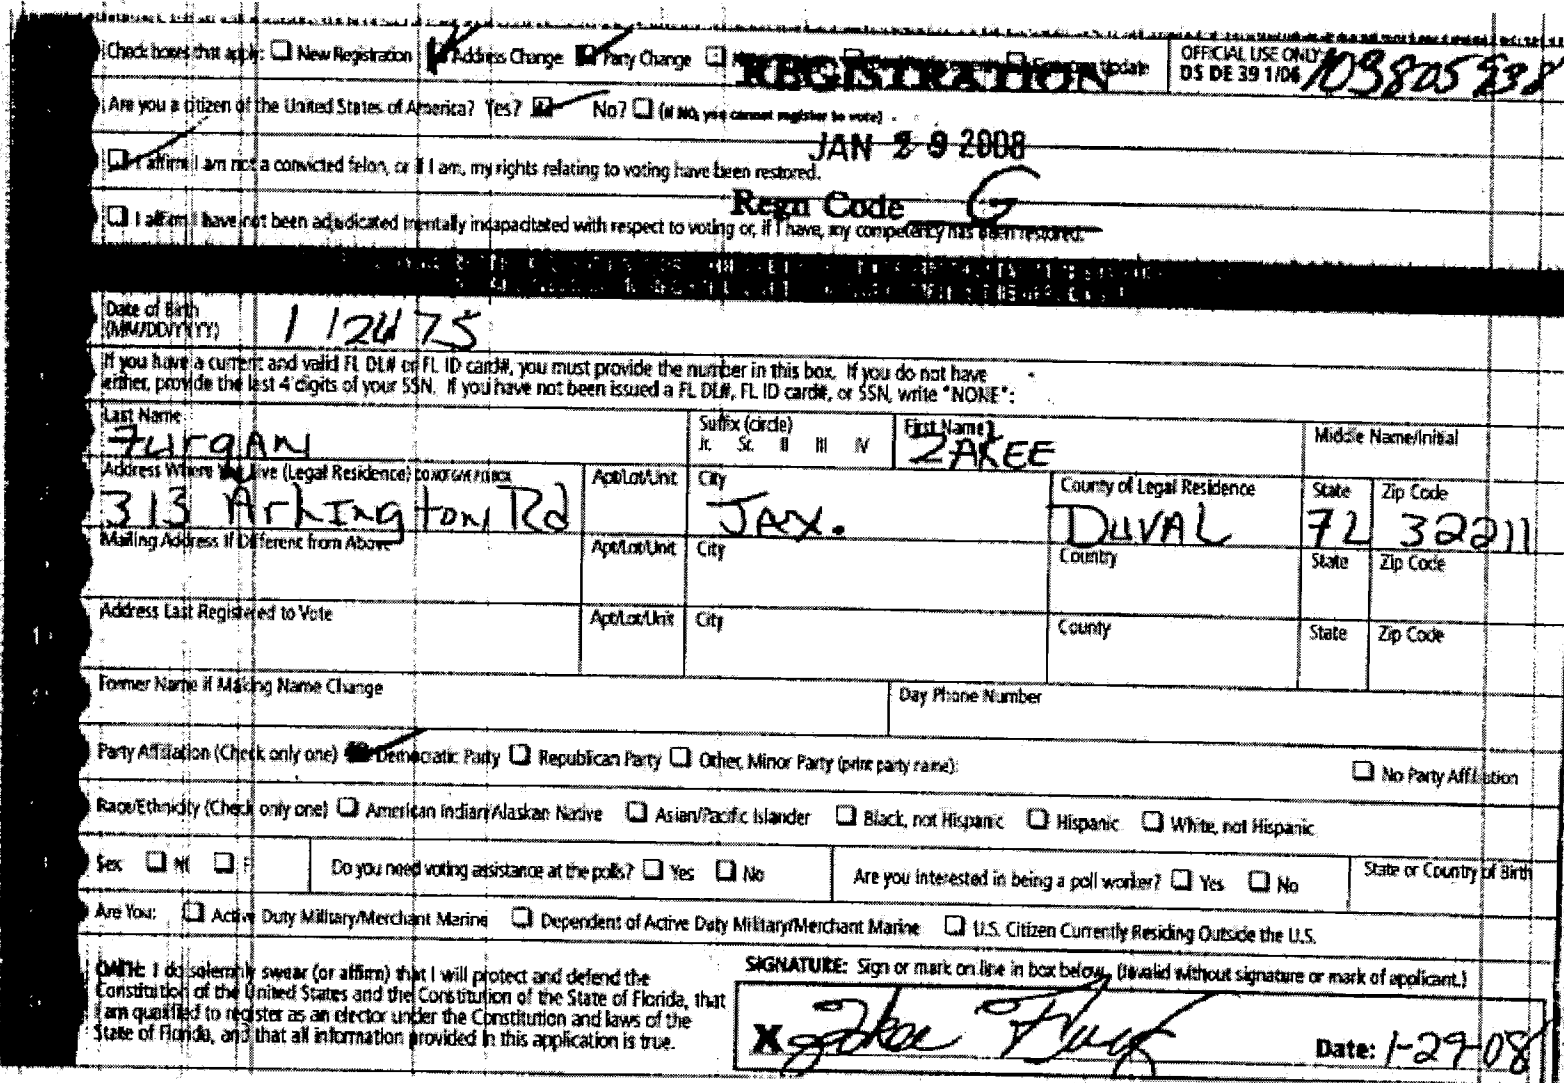 Check boxes that apply: New Registration Address Change Party Change Update
REGISTRATION
OFFICIAL USE ONLY
DS DE 39 1/06 109805938
Are you a citizen of the United States of America? Yes? No? (If NO, you cannot register to vote)
JAN 29 2008
I affirm I am not a convicted felon, or if I am, my rights relating to voting have been restored.
Regn Code G
I affirm I have not been adjudicated mentally incapacitated with respect to voting or, if I have, my competency has been restored.
Date of Birth
(MM/DD/YYYY) 1 12475
If you have a current and valid FL DL# or FL ID card#, you must provide the number in this box. If you do not have
either, provide the last 4 digits of your SSN. If you have not been issued a FL DL#, FL ID card#, or SSN, write "NONE":
Last Name Suffix (circle) First Name Middle Name/Initial
Furqan Jr. Sr. II III IV ZAKEE
Address Where You Live (Legal Residence) DO NOT GIVE PO BOX Apt/Lot/Unit City County of Legal Residence State Zip Code
313 Arlington Rd JAX. DUVAL FL 32211
Mailing Address If Different from Above Apt/Lot/Unit City Country State Zip Code
Address Last Registered to Vote Apt/Lot/Unit City County State Zip Code
Former Name if Making Name Change Day Phone Number
Party Affiliation (Check only one) Democratic Party Republican Party Other, Minor Party (print party name): No Party Affiliation
Race/Ethnicity (Check only one) American Indian/Alaskan Native Asian/Pacific Islander Black, not Hispanic Hispanic White, not Hispanic
Sex M F Do you need voting assistance at the polls? Yes No Are you interested in being a poll worker? Yes No State or Country of Birth
Are You: Active Duty Military/Merchant Marine Dependent of Active Duty Military/Merchant Marine U.S. Citizen Currently Residing Outside the U.S.
OATH: I do solemnly swear (or affirm) that I will protect and defend the
Constitution of the United States and the Constitution of the State of Florida, that
I am qualified to register as an elector under the Constitution and laws of the
State of Florida, and that all information provided in this application is true.
SIGNATURE: Sign or mark on line in box below. (Invalid without signature or mark of applicant.)
X Date: 1-29-08